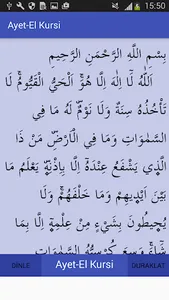 15:50
Ayet-El Kursi
بِسْمِ اللَّهِ الرَّحْمَنِ الرَّحِيمِ
اَللّٰهُ لَا اِلٰهَ اِلَّا هُوَۚ اَلْحَيُّ الْقَيُّومُۚ لَا
تَأْخُذُهُ سِنَةٌ وَلَا نَوْمٌۜ لَهُ مَا فِي
السَّمٰوَاتِ وَمَا فِي الْاَرْضِۜ مَنْ ذَا
الَّذ۪ي يَشْفَعُ عِنْدَهُٓ اِلَّا بِاِذْنِه۪ۜ يَعْلَمُ مَا
بَيْنَ اَيْد۪يهِمْ وَمَا خَلْفَهُمْۚ وَلَا
يُح۪يطُونَ بِشَيْءٍ مِنْ عِلْمِه۪ٓ اِلَّا بِمَا
شَٓاءَۚ وَسِعَ كُرْسِيُّهُ السَّمٰوَاتِ
DİNLE Ayet-El Kursi DURAKLAT